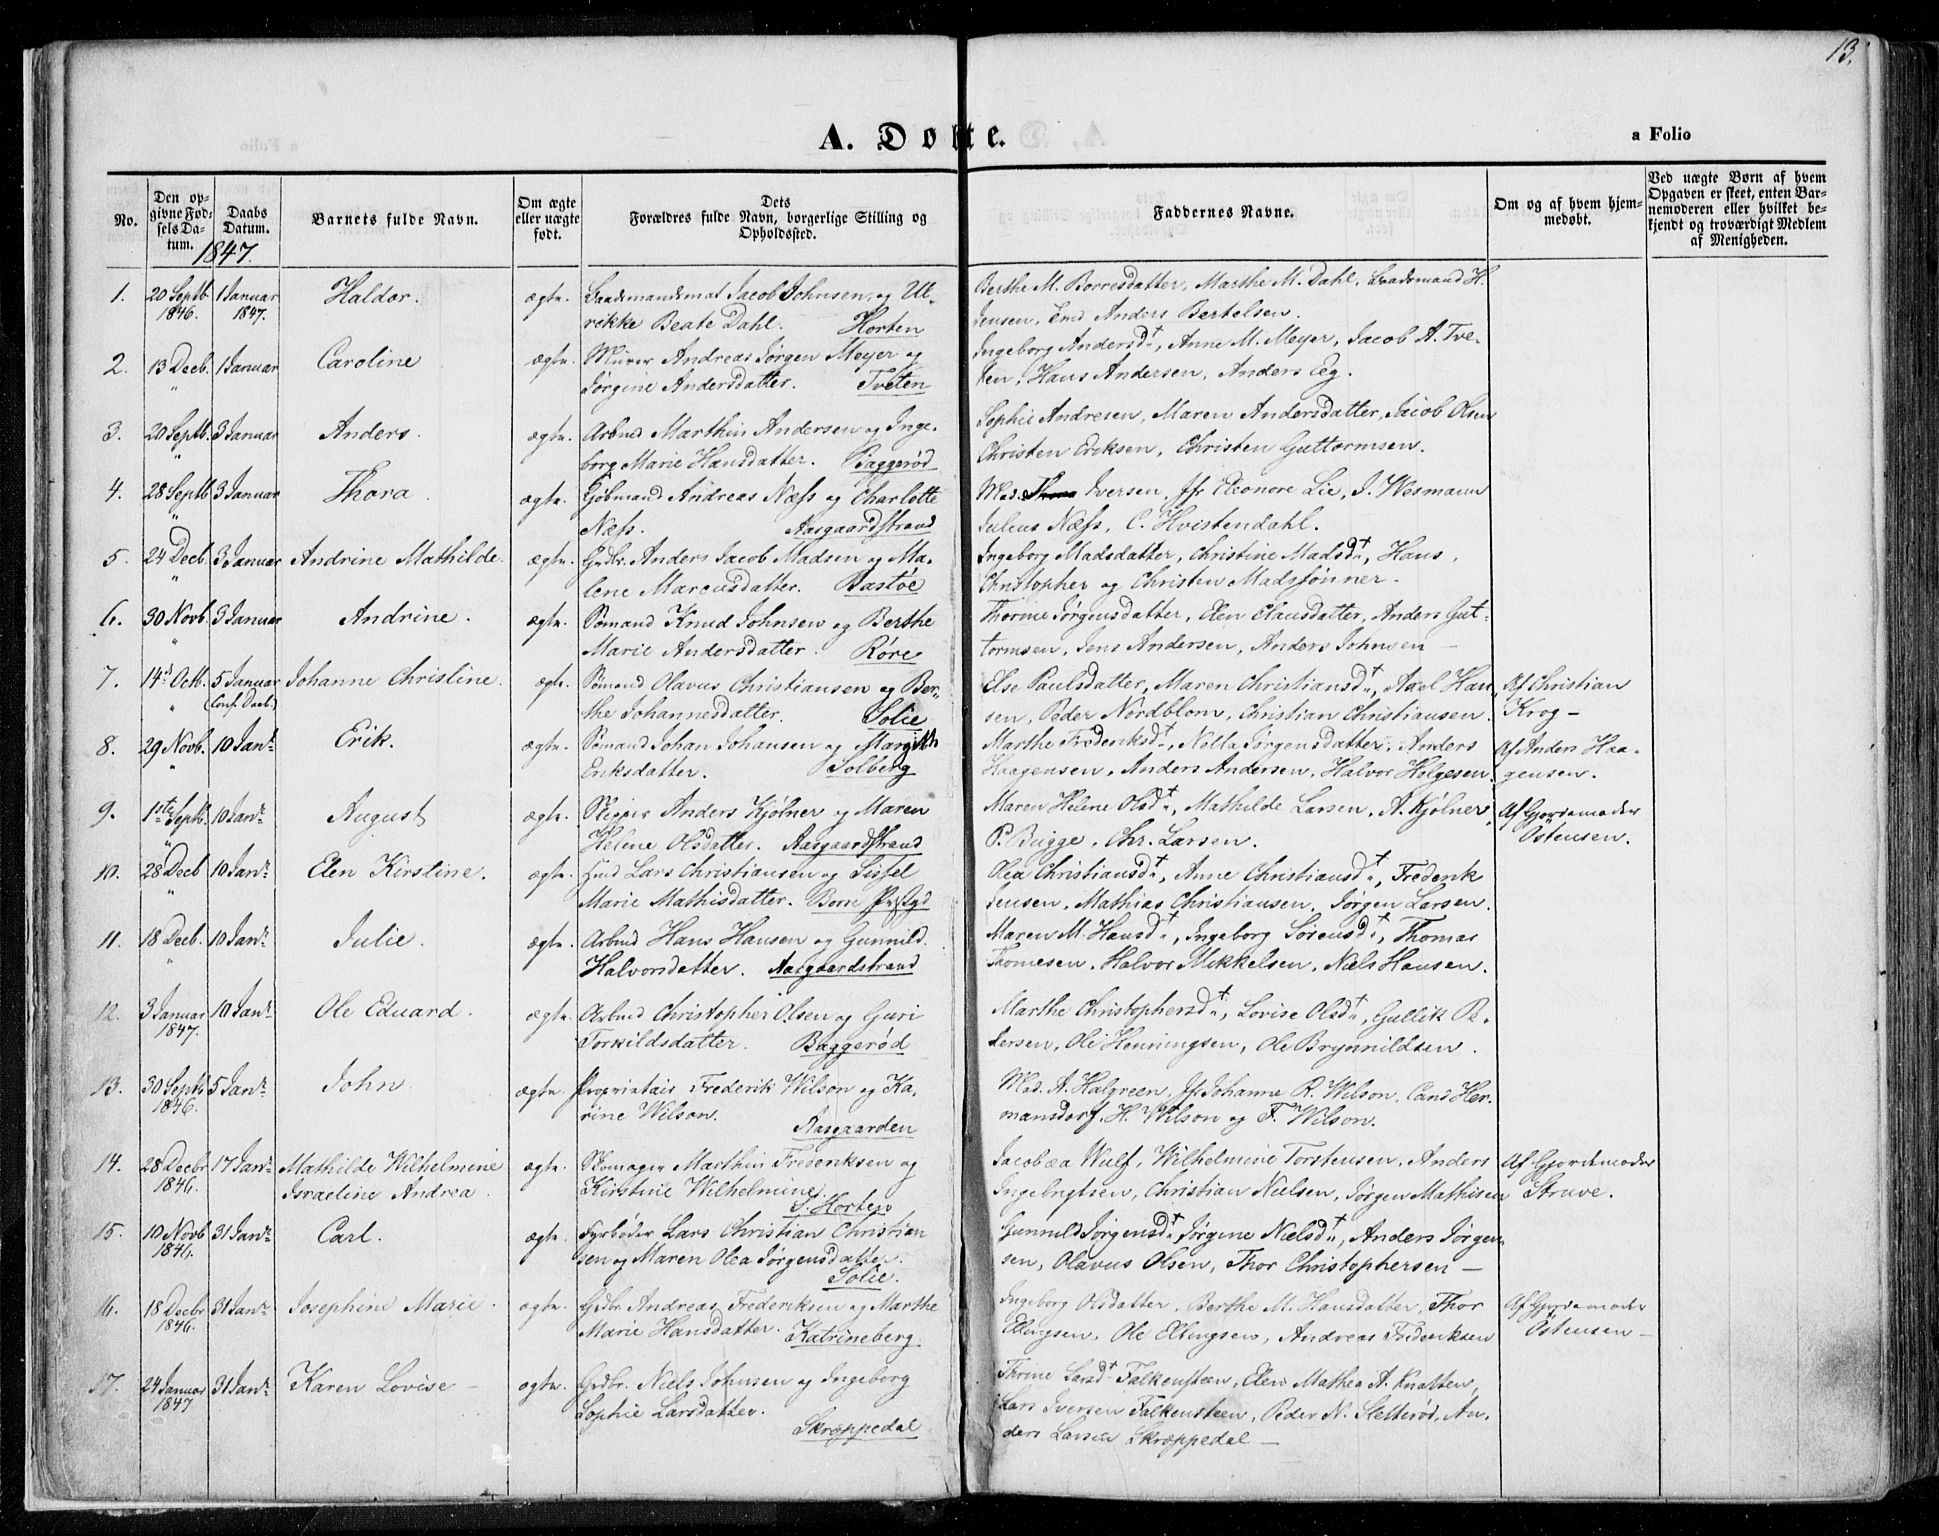 13.
A. Døbte.
a Folio
No.
Den opgivne Fødsels Datum.
Daabs Datum.
1847.
Barnets fulde Navn.
Om ægte eller uægte født.
Dets Forældres fulde Navn, borgerlige Stilling og Opholdssted.
Faddernes Navne.
Om og af hvem hjemmedøbt.
Ved uægte Børn af hvem Opgaven er skeet, enten Barnemoderen eller hvilket bekjendt og troværdigt Medlem af Menigheden.
1. 20 Septb. 1 Januar Haldor. ægte. Baadsmandsmat Jacob Johnsen, og Ul- Berthe M. Borresdatter, Marthe M. Dahl, Baadsmand H.
1846. 1847. rikke Beate Dahl. Horten Jensen, Anders Bertelsen.
2. 13 Decb. 1 Januar Caroline ægte. Murer Andreas Jørgen Meyer og Ingeborg Andersd., Anne M. Meyer, Jacob A. Tve-
" Jørgine Andersdatter. Tveten ten, Hans Andersen, Anders Eeg.
3. 20 Septb. 3 Januar Anders. ægte. Arbmd Marthin Andersen og Inge- Sophie Andresen, Maren Andersdatter, Jacob Olsen
" borg Marie Hansdatter. Baggerød Christen Eriksen, Christen Guttormsen.
4. 28 Septb 3 Januar Thora. ægte. Kjøbmand Andreas Næss og Charlotte Mad. Iversen, Jfr Eleonore Lie, J. Wesmann
" Næss. Aasgaardstrand Julius Næss, C. Hvistendahl.
5. 24 Decb. 3 Januar Andrine Mathilde. ægte. Grdbr. Anders Jacob Madsen og Ma- Ingeborg Madsdatter, Christine Madsd., Hans,
" lene Marcusdatter. Bastøe Christopher og Christen Madssønner.
6. 30 Novb. 3 Januar Andrine. ægte. Sømand Knud Johnsen og Berthe Thorine Jørgensdatter, Elen Clausdatter, Anders Gut-
Marie Andersdatter. Røre tormsen, Jens Andersen, Anders Johnsen —
7. 14de Octb. 5 Januar Johanne Christine. ægte. Sømand Olavus Christiansen og Ber- Else Paulsdatter, Maren Christiansd., Axel Han- Af Christian
" (Conf. Daab) the Johannesdatter. Solie sen, Peder Nordblom, Christian Christiansen. Krog —
8. 29 Novb. 10 Janr. Erik. ægte. Sømand Johan Johansen og Margith Marthe Frederiksd., Nella Jørgensdatter, Anders Af Anders Haa-
" Eriksdatter. Solberg Haagensen, Anders Andersen, Halvor Helgesen. gensen.
9. 1ste Septb. 10 Janr. August ægte. Skipper Anders Kjølner og Maren Maren Helene Olsd., Mathilde Larsen, A. Kjølner, Af Gjordemoder
" Helene Olsdatter. Aasgaardstrand P. Bugge, Chr. Larsen. Østensen.
10. 28 Decb 10 Janr. Elen Kirstine. ægte. Hmd Lars Christiansen og Sissel Olea Christiansd., Anne Christiansd., Frederik
" Marie Mathisdatter. Borre Præstgd Jensen, Mathias Christiansen, Jørgen Larsen.
11. 18 Decb. 10 Janr. Julie. ægte. Arbmd Hans Hansen og Gunnild Maren M. Hansd., Ingeborg Sørensd., Thomas
" Halvorsdatter. Aasgaardstrand Thomesen, Halvor Mikkelsen, Niels Hansen.
12. 3 Januar 10 Janr. Ole Eduard. ægte. Arbmd Christopher Olsen og Guri Marthe Christophersd., Lovise Olsd., Gullik Pe-
1847. Torkildsdatter. Baggerød dersen, Ole Henningsen, Ole Brynnildsen.
13. 30 Septb 5 Janr. John ægte. Proprietair Frederik Wilson og Ka- Mad. A. Halgreen, Jfr Johanne R. Wilson, Cand Her-
1846. rine Wilson. Aasgaarden mansdorf, H. Wilson og F. Wilson.
14. 28 Decbr 17 Janr. Mathilde Wilhelmine ægte. Skomager Marthin Frederiksen og Jacobæa Wulf, Wilhelmine Torstensen, Anders Af Gjordemoder
1846. Israeline Andrea. Kirstine Wilhelmine. S. Horten Ingebrigtsen, Christian Nielsen, Jørgen Mathisen Struve.
15. 10 Novb 31 Janr. Carl. ægte. Fyrbøder Lars Christian Christian Gunnild Jørgensd., Jørgine Nielsd., Anders Jørgen-
1846. sen og Maren Olea Jørgensdatter. Solie. sen, Olavus Olsen, Thor Christophersen —
16. 18 Decbr 31 Janr. Josephine Marie. ægte. Grdbr. Andreas Frederiksen og Marthe Ingeborg Olsdatter, Berthe M. Hansdatter, Thor Af Gjordemoder
1846. Marie Hansdatter. Katrineberg. Ellingsen, Ole Ellingsen, Andreas Frederiksen Østensen —
17. 24 Januar 31 Janr. Karen Lovise — ægte. Grdbr. Niels Johnsen og Ingeborg Thrine Larsd. Falkensteen, Elen Mathea A. Knatten,
1847 Sophie Larsdatter. Skroppedal Lars Iversen Falkensteen, Peder N. Sletterød, An-
ders Larsen Skroppedal —